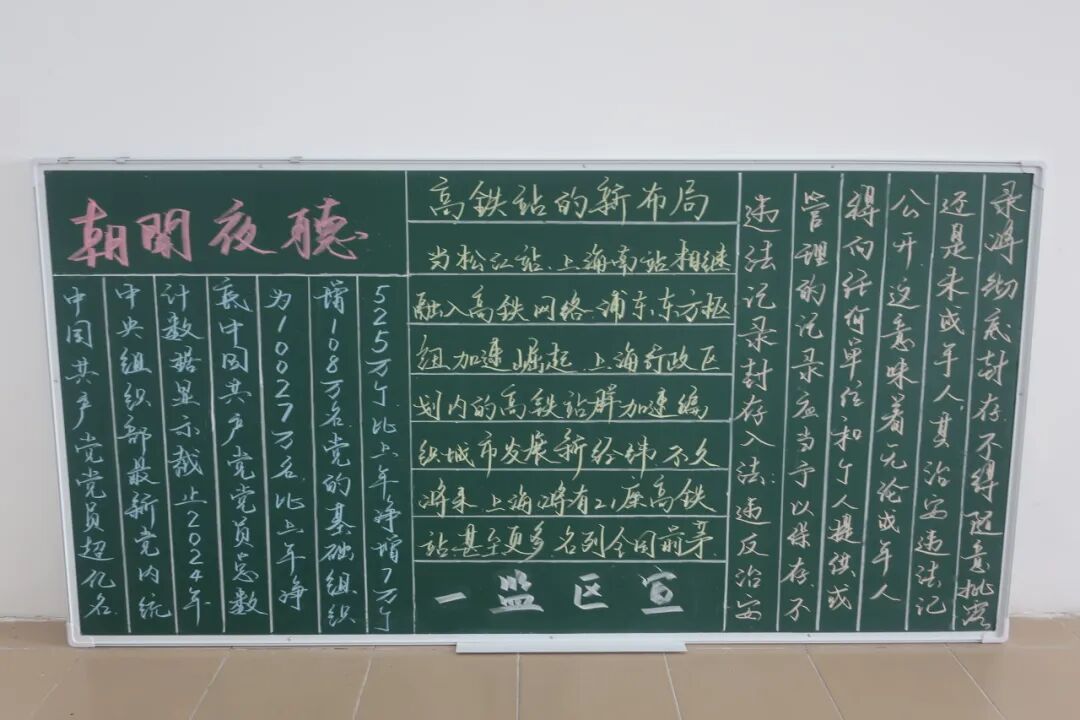 朝聞夜聽
中国共产党党员超亿名
中央组织部最新党内统
计数据显示截止2024年
底中国共产党党员总数
为10027万名.比上年净
增108万名.党的基础组织
525万个.比上年净增7万个
高铁站的新布局
当松江站.上海南站相继
融入高铁网络.浦东东方枢
纽加速崛起.上海行政区
划内的高铁站群加速编
织城市发展新经纬.不久
将来上海将有21座高铁
站甚至更多名列全国前茅
一监区宣
违法记录封存入法:违反治安
管理的记录应当予以保存.不
得向任何单位和个人提供或
公开.这意味着无论成年人
还是未成年人,其治安违法记
录将彻底封存.不得随意批露